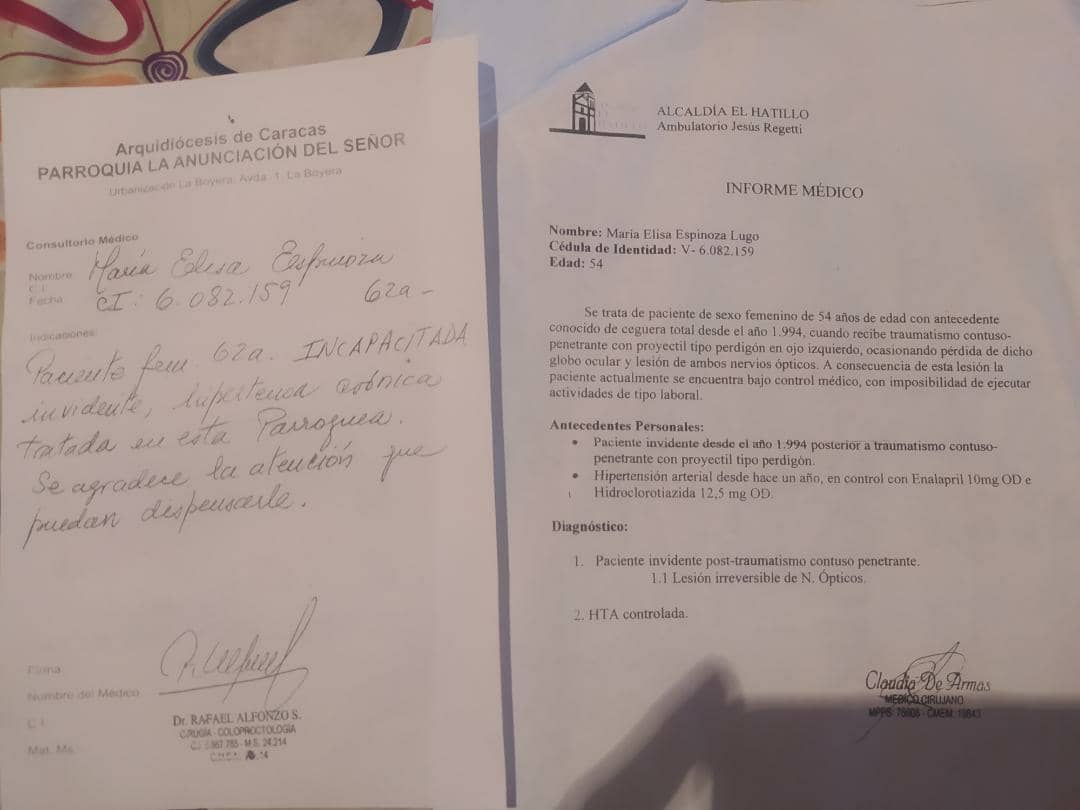 Arquidiócesis de Caracas
PARROQUIA LA ANUNCIACIÓN DEL SEÑOR
Urbanización La Boyera, Avda. 1. La Boyera
Consultorio Médico
Nombre: María Elisa Espinoza
C.I.
Fecha: CI: 6.082.159 62a-
Indicaciones:
Paciente fem. 62a. INCAPACITADA
invidente, hipertensa crónica
tratada en esta Parroquia.
Se agradece la atención que
puedan dispensarle.
Firma
Nombre del Médico
C.I.
Mat. Ms.
Dr. RAFAEL ALFONZO S.
CIRUGÍA - COLOPROCTOLOGÍA
M.S. 24.214
ALCALDÍA EL HATILLO
Ambulatorio Jesús Regetti
INFORME MÉDICO
Nombre: María Elisa Espinoza Lugo
Cédula de Identidad: V- 6.082.159
Edad: 54
Se trata de paciente de sexo femenino de 54 años de edad con antecedente
conocido de ceguera total desde el año 1.994, cuando recibe traumatismo contuso-
penetrante con proyectil tipo perdigón en ojo izquierdo, ocasionando pérdida de dicho
globo ocular y lesión de ambos nervios ópticos. A consecuencia de esta lesión la
paciente actualmente se encuentra bajo control médico, con imposibilidad de ejecutar
actividades de tipo laboral.
Antecedentes Personales:
• Paciente invidente desde el año 1.994 posterior a traumatismo contuso-
penetrante con proyectil tipo perdigón.
• Hipertensión arterial desde hace un año, en control con Enalapril 10mg OD e
Hidroclorotiazida 12,5 mg OD.
Diagnóstico:
1. Paciente invidente post-traumatismo contuso penetrante.
1.1 Lesión irreversible de N. Ópticos.
2. HTA controlada.
Claudia De Armas
MEDICO CIRUJANO